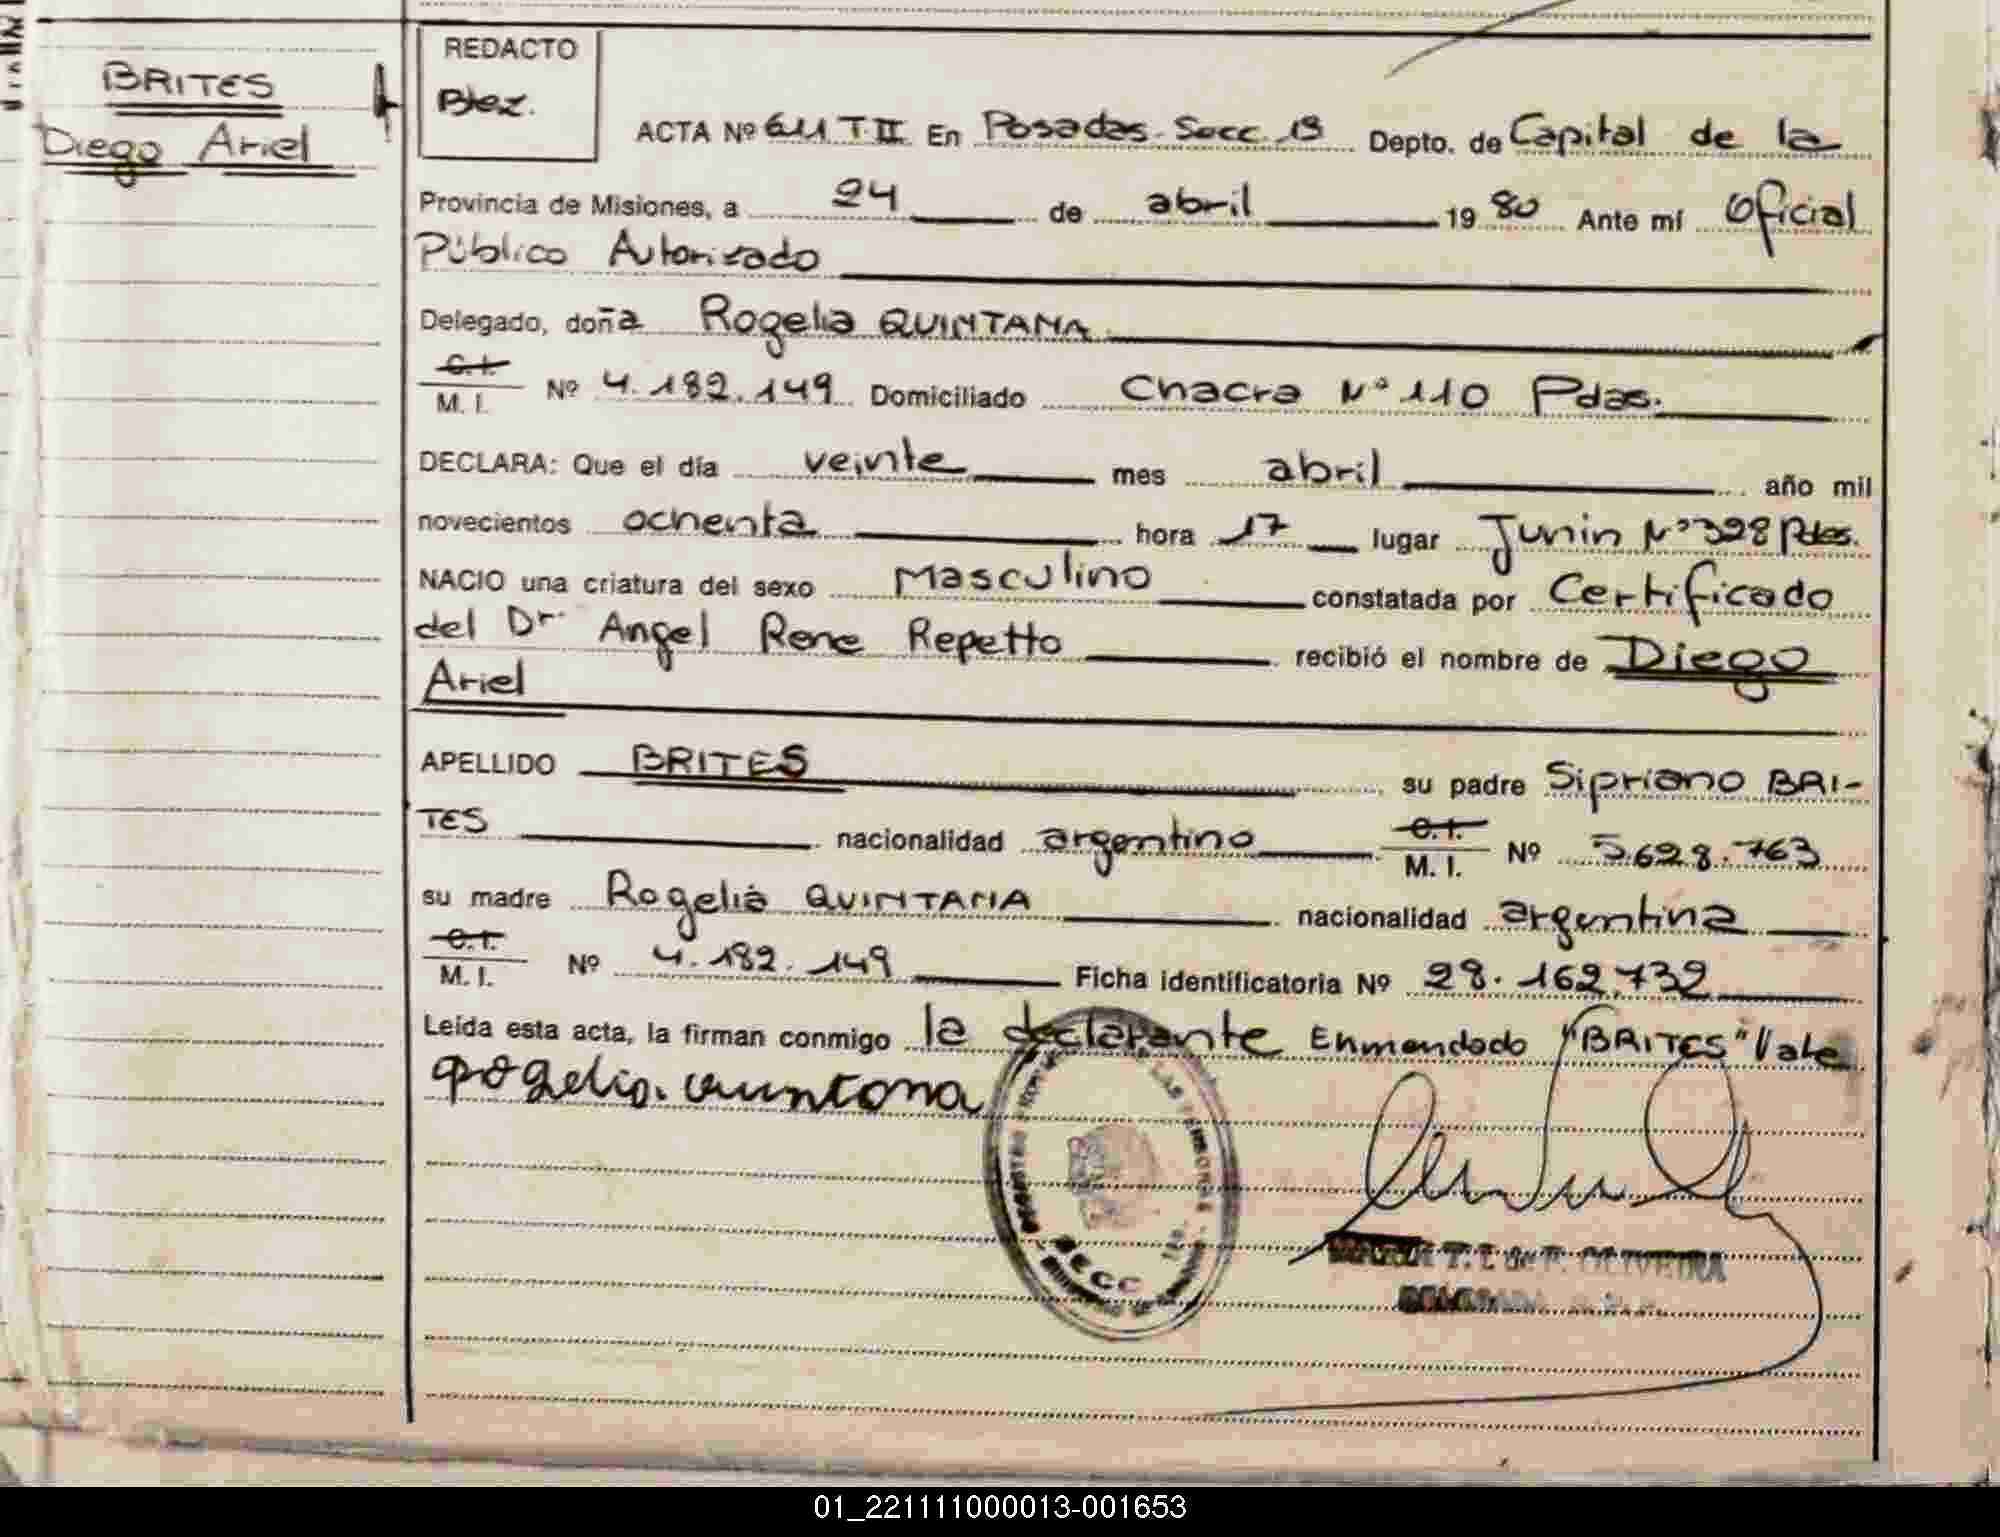 BRITES
Diego Ariel
REDACTO
Blez.
ACTA Nº 611 T. II En Posadas. Secc. 1ª Depto. de Capital de la
Provincia de Misiones, a 24 de abril 1980 Ante mí Oficial
Público Autorizado
Delegado, doña Rogelia QUINTANA
C. I.
M. I. Nº 4.182.149 Domiciliado Chacra Nº 110 Pdas.
DECLARA: Que el día veinte mes abril año mil
novecientos ochenta hora 17 lugar Junin Nº 328 Pdas.
NACIO una criatura del sexo Masculino constatada por Certificado
del Dr Angel Rene Repetto recibió el nombre de Diego
Ariel
APELLIDO BRITES su padre Sipriano BRI-
TES nacionalidad argentino C. I. M. I. Nº 5.628.763
su madre Rogelia QUINTANA nacionalidad argentina
C. I.
M. I. Nº 4.182.149 Ficha identificatoria Nº 28.162.732
Leída esta acta, la firman conmigo la declarante Enmendado "BRITES" Vale
Rogelia Quintana
REGISTRO LAS PERSONAS
SECC
T. L. de F. OLIVEIRA
DELEGADA
01_221111000013-001653